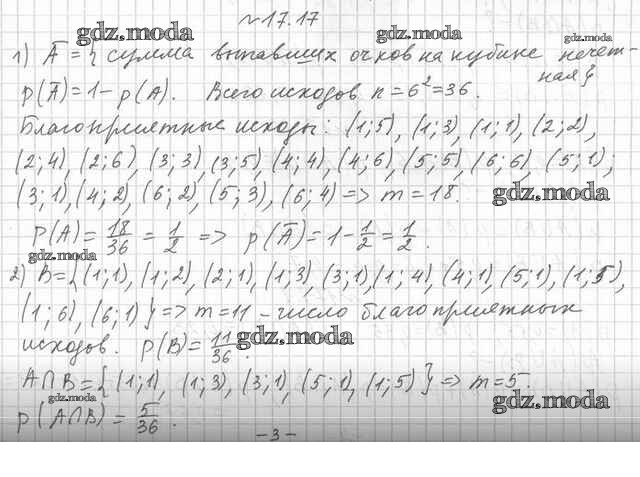 №17.17
gdz.moda gdz.moda gdz.moda
1) Ā = { сумма выпавших очков на кубике нечет-
ная}
p(Ā) = 1 - p(A). Всего исходов n = 6² = 36.
Благоприятные исходы: (1;5), (1;3), (1;1), (2;2),
(2;4), (2;6), (3;3), (3;5), (4;4), (4;6), (5;5), (6;6), (5;1);
(3;1), (4;2), (6;2), (5;3), (6;4) => m = 18.
gdz.moda
p(A) = 18/36 = 1/2 => p(Ā) = 1 - 1/2 = 1/2.
gdz.moda
2) B = {(1;1), (1;2), (2;1), (1;3), (3;1), (1;4), (4;1), (5;1), (1;5),
(1;6), (6;1)} => m = 11 - число благоприятных
gdz.moda
исходов. p(B) = 11/36.
A∩B = {(1;1), (1;3), (3;1), (5;1), (1;5)} => m = 5.
gdz.moda gdz.moda
p(A∩B) = 5/36.
-3-